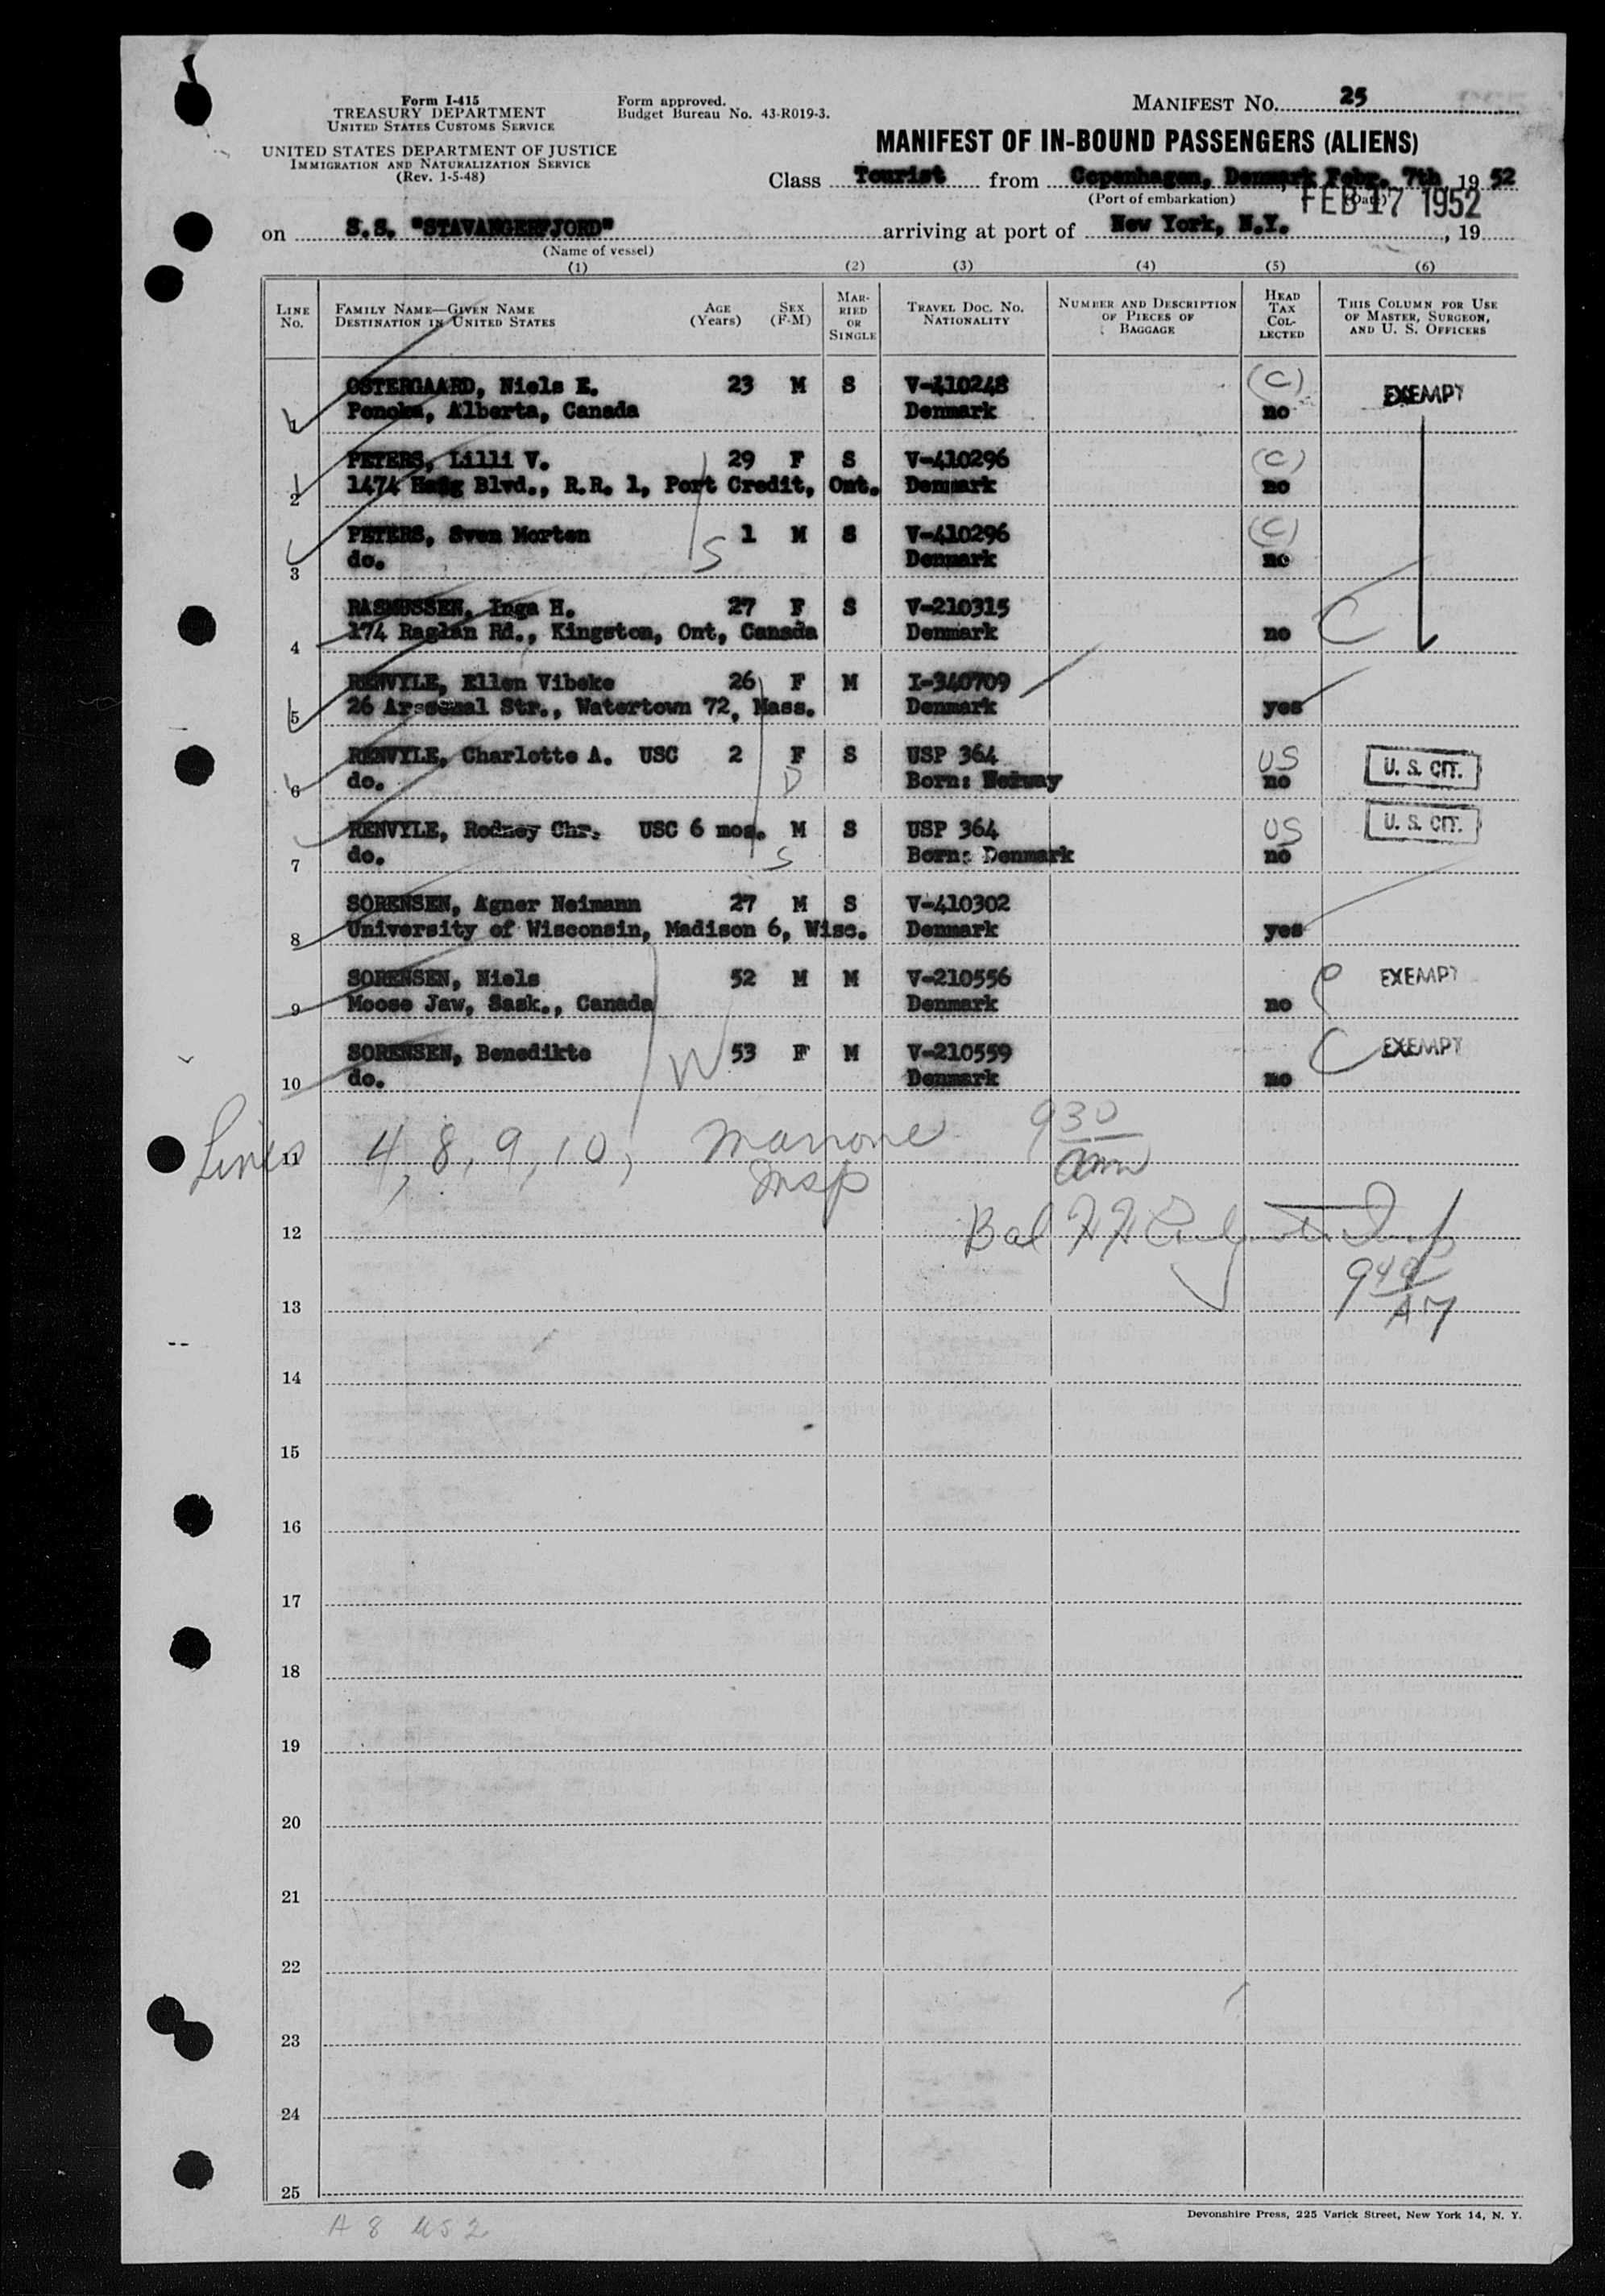 Form I-415
TREASURY DEPARTMENT
UNITED STATES CUSTOMS SERVICE
UNITED STATES DEPARTMENT OF JUSTICE
IMMIGRATION AND NATURALIZATION SERVICE
(Rev. 1-5-48)
Form approved.
Budget Bureau No. 43-R019-3.
MANIFEST NO. 25
MANIFEST OF IN-BOUND PASSENGERS (ALIENS)
Class Tourist from Copenhagen, Denmark Febr. 7th, 19 52
(Port of embarkation) (Date)
FEB 17 1952
on S.S. "STAVANGERFJORD" arriving at port of New York, N.Y. , 19
(Name of vessel)
(1) (2) (3) (4) (5) (6)
LINE No. FAMILY NAME—GIVEN NAME DESTINATION IN UNITED STATES AGE (Years) SEX (F-M) MARRIED OR SINGLE TRAVEL DOC. NO. NATIONALITY NUMBER AND DESCRIPTION OF PIECES OF BAGGAGE HEAD TAX COLLECTED THIS COLUMN FOR USE OF MASTER, SURGEON, AND U. S. OFFICERS
OSTERGAARD, Niels E. 23 M S V-410248 (C) EXEMPT
1 Ponoka, Alberta, Canada Denmark no
PETERS, Lilli V. 29 F S V-410296 (C)
2 1474 Haig Blvd., R.R. 1, Port Credit, Ont. Denmark no
PETERS, Sven Morten 1 M S V-410296 (C)
3 do. S Denmark no
RASMUSSEN, Inga H. 27 F S V-210315 C
4 174 Raglan Rd., Kingston, Ont, Canada Denmark no
RENVYLE, Ellen Vibeke 26 F M I-340709
5 26 Arssenal Str., Watertown 72, Mass. Denmark yes
RENVYLE, Charlotte A. USC 2 F S USP 364 US U. S. CIT.
6 do. D Born: Norway no
RENVYLE, Rodney Chr. USC 6 mos. M S USP 364 US U. S. CIT.
7 do. S Born: Denmark no
SORENSEN, Agner Neimann 27 M S V-410302
8 University of Wisconsin, Madison 6, Wisc. Denmark yes
SORENSEN, Niels 52 M M V-210556 C EXEMPT
9 Moose Jaw, Sask., Canada Denmark no
SORENSEN, Benedikte W 53 F M V-210559 C EXEMPT
10 do. Denmark no
Lines 11 4, 8, 9, 10, Marrone 930
Insp am
12 Bal
13 AM
14
15
16
17
18
19
20
21
22
23
24
25
Devonshire Press, 225 Varick Street, New York 14, N. Y.